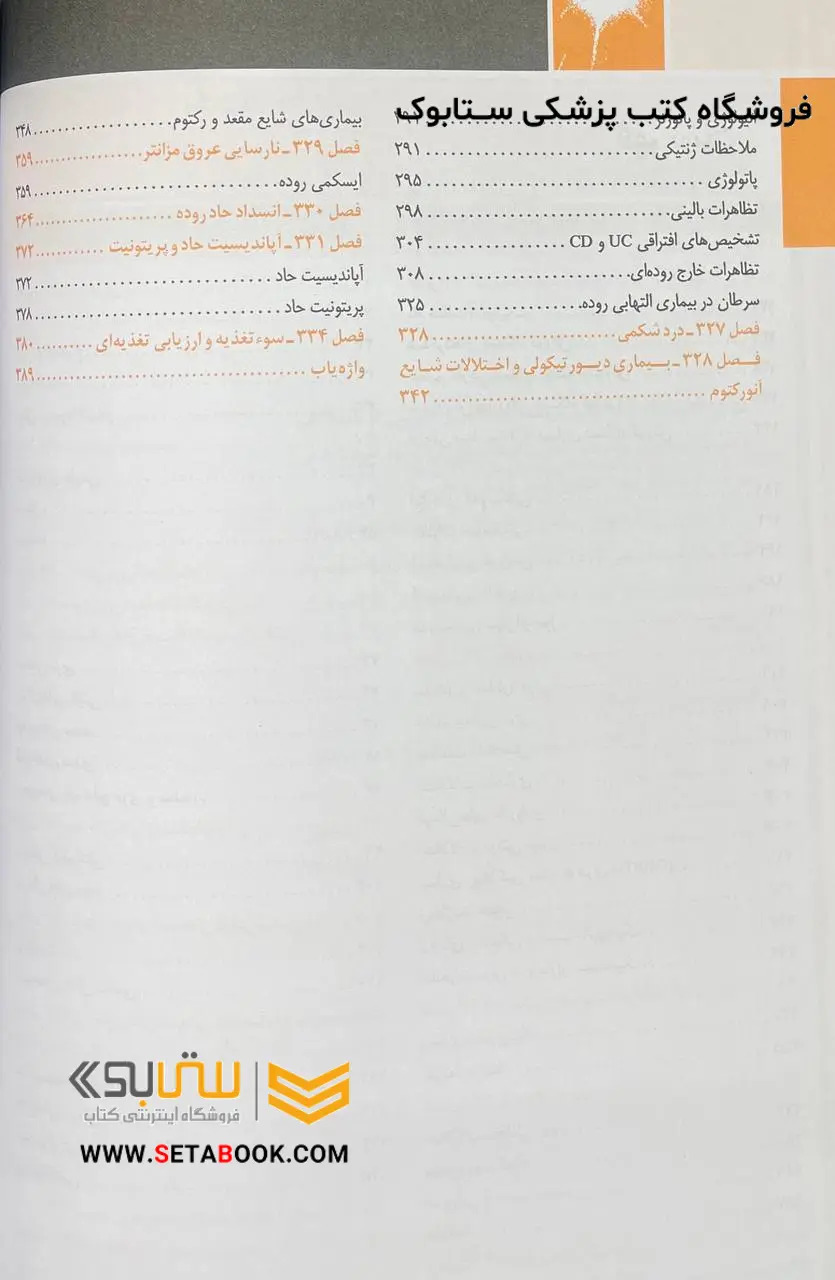 فروشگاه کتب پزشکی ستابوک
ملاحظات ژنتیکی. . . . . . . . . . . . . . . . . . . . . . . . . . . . . . ۲۹۱
پاتولوژی . . . . . . . . . . . . . . . . . . . . . . . . . . . . . . . . . ۲۹۵
تظاهرات بالینی. . . . . . . . . . . . . . . . . . . . . . . . . . . . ۲۹۸
تشخیص‌های افتراقی UC و CD . . . . . . . . . . . . . . . . . ۳۰۴
تظاهرات خارج روده‌ای. . . . . . . . . . . . . . . . . . . . . . . . ۳۰۸
سرطان در بیماری التهابی روده. . . . . . . . . . . . . . . . . . ۳۲۵
فصل ۳۲۷ـ درد شکمی . . . . . . . . . . . . . . . . . . . . . . . . ۳۲۸
فـصل ۳۲۸ ـ بـیـماری دیـور تیکولی و اخـتلالات شـایع
آنورکتوم . . . . . . . . . . . . . . . . . . . . . . . . . . . . . . . . . ۳۴۲
بیماری‌های شایع مقعد و رکتوم. . . . . . . . . . . . . . . . . . . ۳۴۸
فصل ۳۲۹ ـ نارسایی عروق مزانتر . . . . . . . . . . . . . . . . ۳۵۹
ایسکمی روده. . . . . . . . . . . . . . . . . . . . . . . . . . . . . . ۳۵۹
فصل ۳۳۰ ـ انسداد حاد روده . . . . . . . . . . . . . . . . . . . . ۳۶۴
فصل ۳۳۱ ـ آپاندیسیت حاد و پریتونیت . . . . . . . . . . . . ۳۷۲
آپاندیسیت حاد . . . . . . . . . . . . . . . . . . . . . . . . . . . . . ۳۷۲
پریتونیت حاد . . . . . . . . . . . . . . . . . . . . . . . . . . . . . . ۳۷۸
فصل ۳۳۴ ـ سوء تغذیه و ارزیابی تغذیه‌ای . . . . . . . . . . ۳۸۰
واژه‌یاب . . . . . . . . . . . . . . . . . . . . . . . . . . . . . . . . . . ۳۸۹
ستابوک
فروشگاه اینترنتی کتاب
WWW.SETABOOK.COM